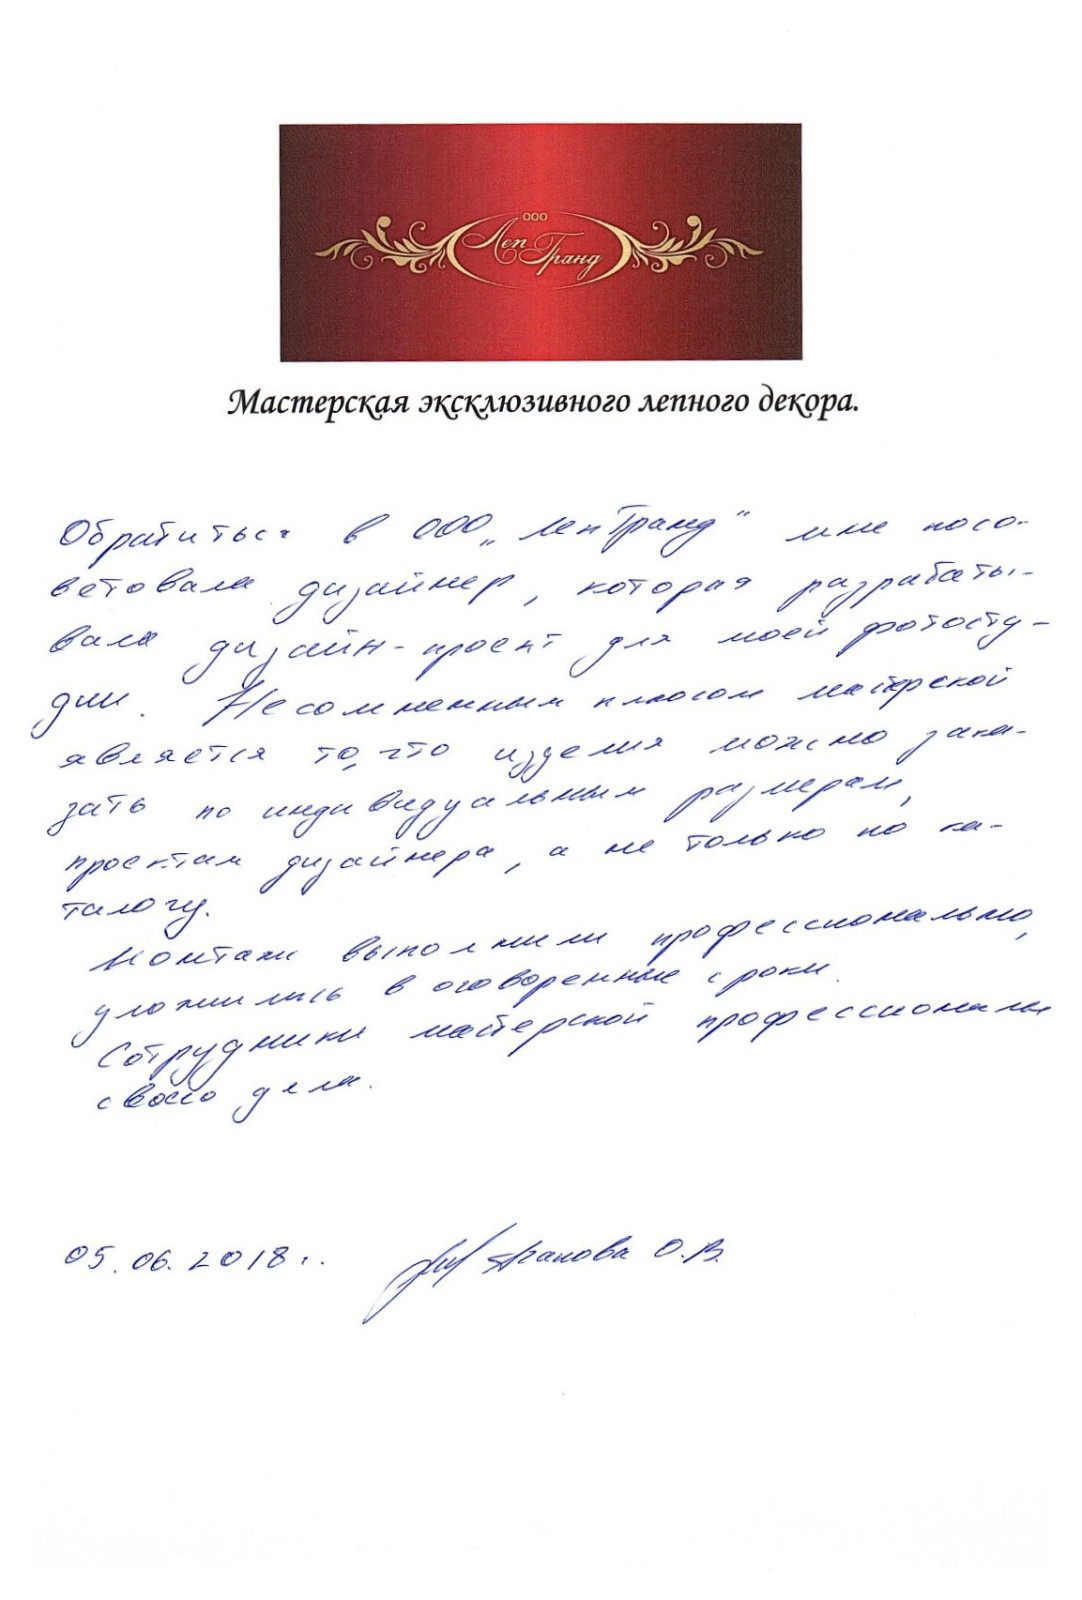 ООО
Леп Гранд
Мастерская эксклюзивного лепного декора.
Обратиться в ООО „ЛепГранд“ мне посо-
ветовала дизайнер, которая разрабаты-
вала дизайн-проект для моей фотосту-
дии. Несомненным плюсом мастерской
является то, что изделия можно зака-
зать по индивидуальным размерам,
проектам дизайнера, а не только по ка-
талогу.
Монтаж выполнили профессионально,
уложились в оговоренные сроки.
Сотрудники мастерской профессионалы
своего дела.
05.06.2018г. О.В.